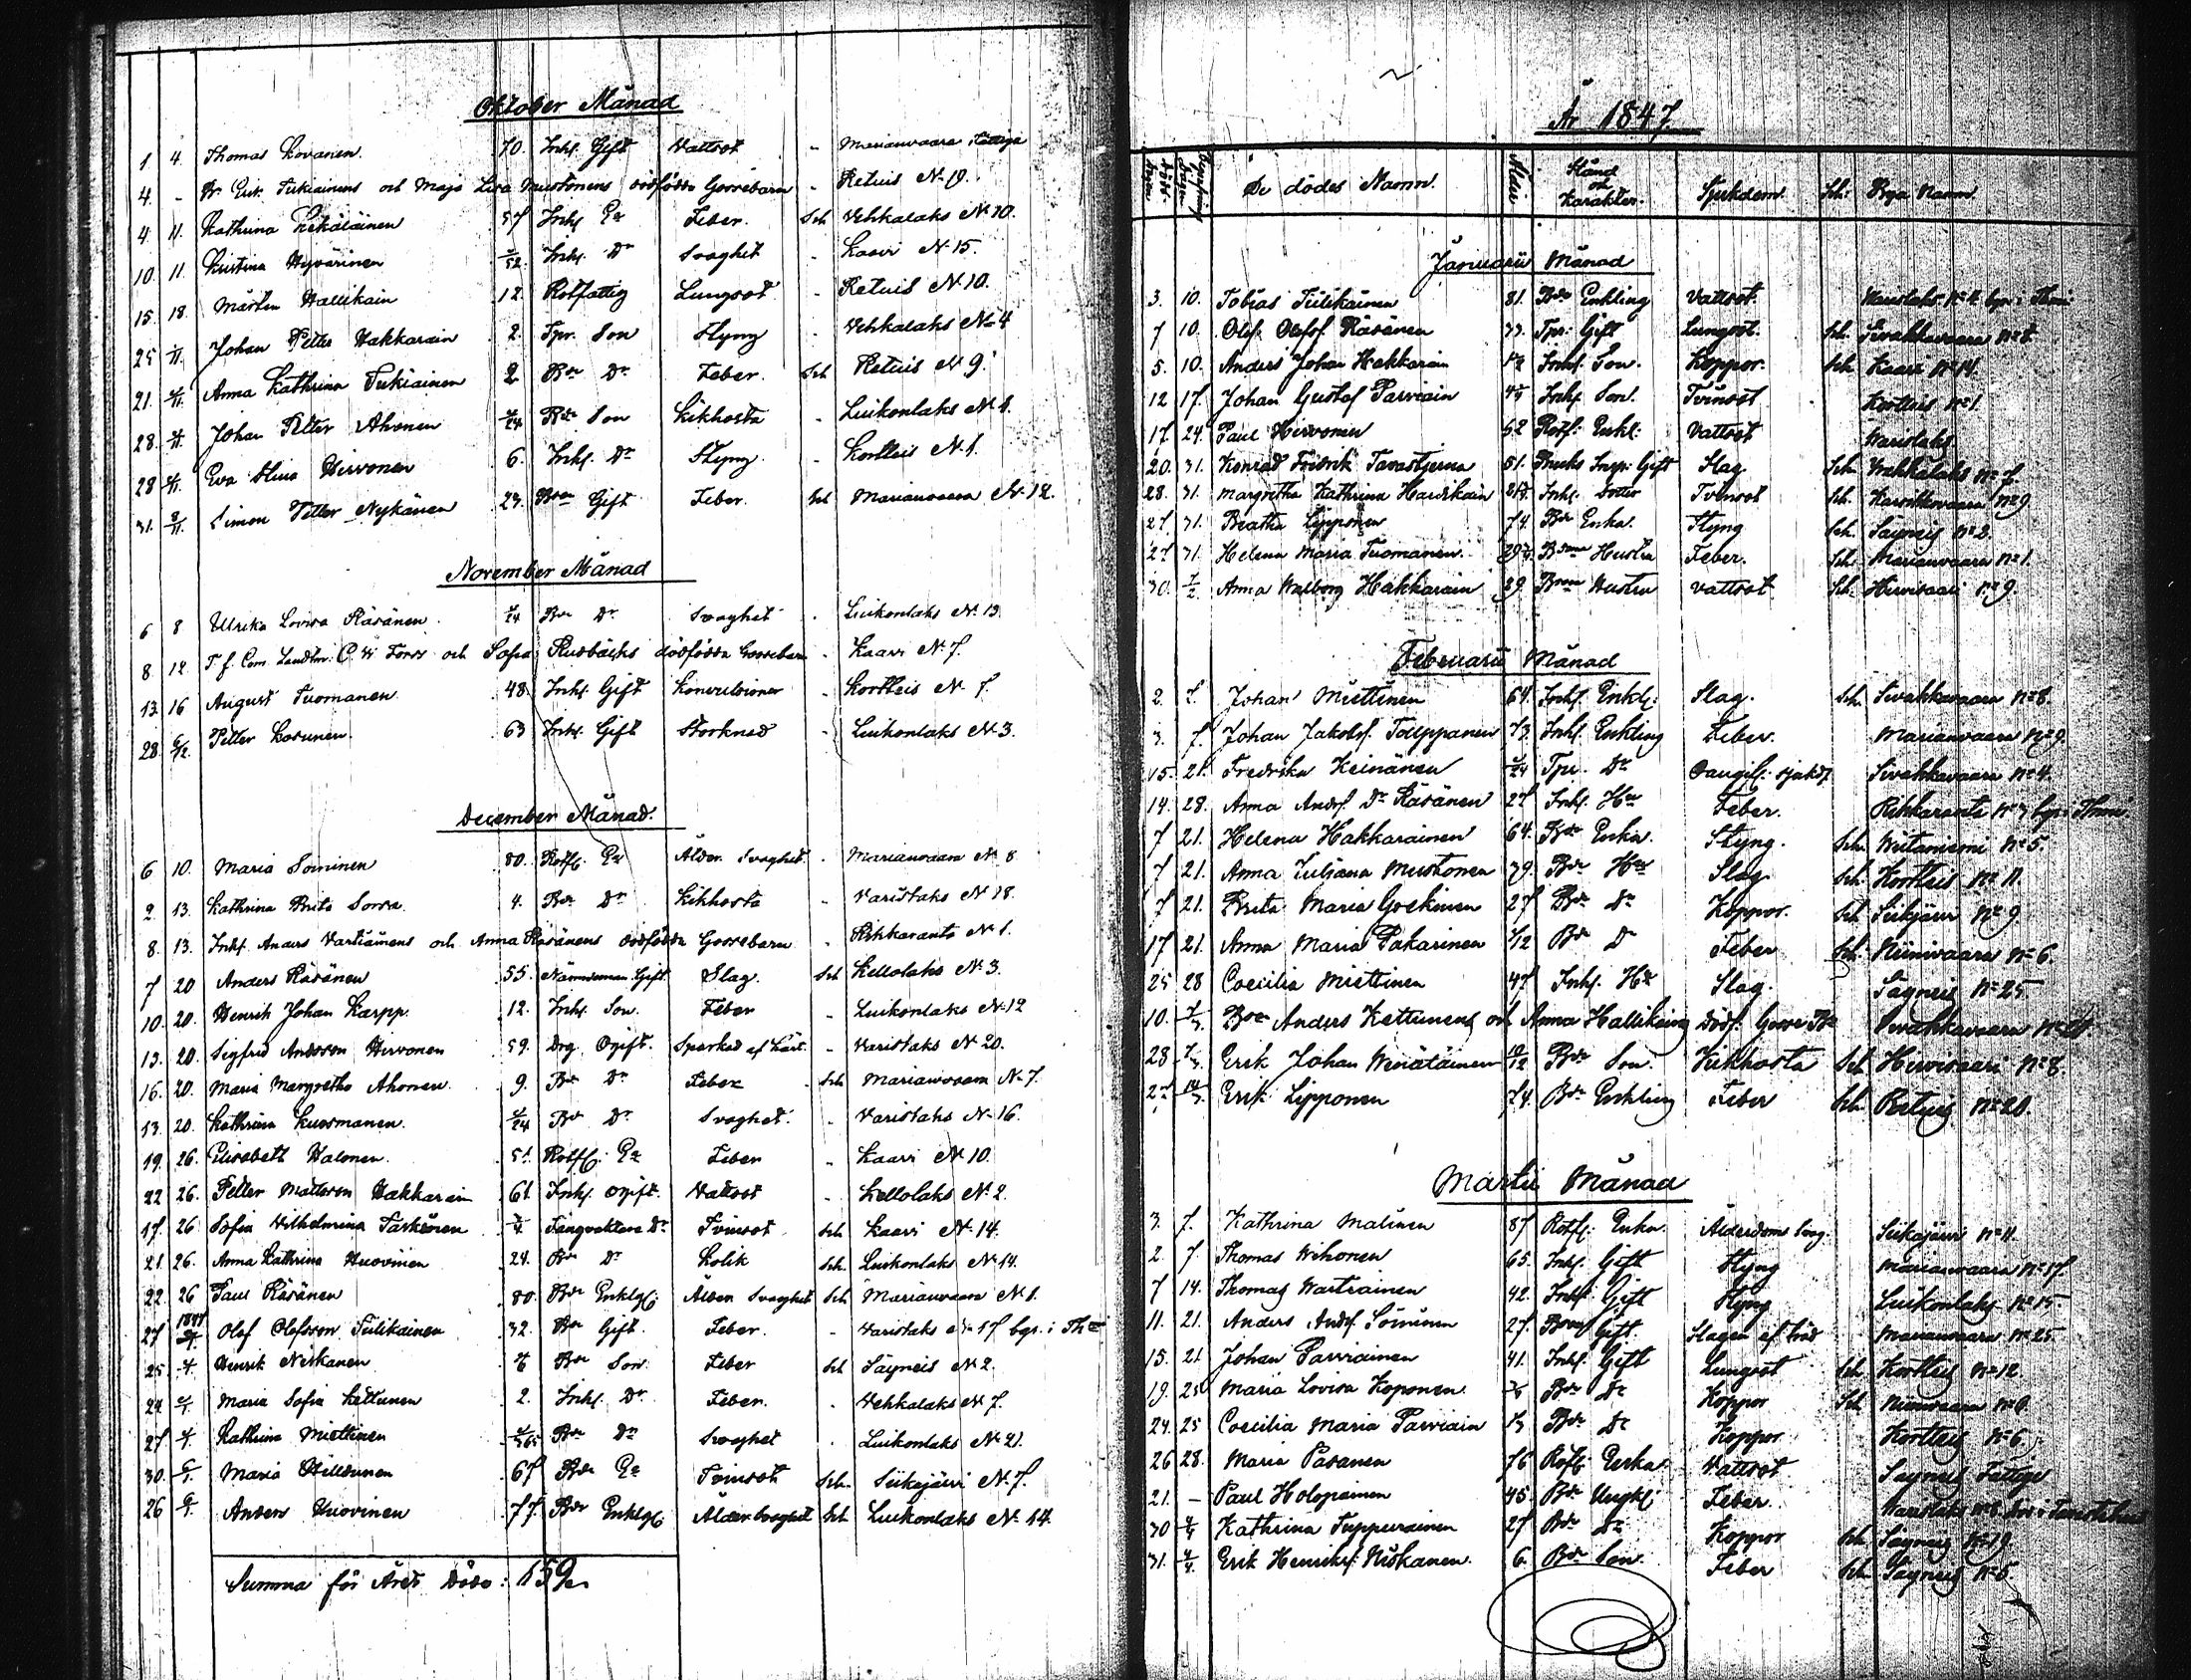 Oktober Månad
1. 4. Thomas Kovanen. 70. Inhs. Gift Vattsot - Marianvaara Fattige
4. - Br Erik Tukiainens och Maja Lisa Mustonens dödfödda Gossebarn - Retuis N. 19.
4. 11. Kathrina Kekäläinen 57 Inhs. Feber. Sch Vehkalaks N. 10.
10. 11. Kristina Hyvärinen Inhs. Dr Svaghet - Kaavi N. 15.
15. 18. Mårten Hallikain 12. Rotfattig Lungsot - Retuis N. 10.
25 Johan Petter Hakkarain 2. Tpr. Son Styng - Vehkalaks N. 4
21. Anna Kathrina Tukiainen 2 Bdr Dr Feber. Sch Retuis N. 9.
28. Johan Petter Ahonen Bdr Son Kikhosta - Luikonlaks N. 1.
28 Eva Stina Hirvonen 6. Inhs. Dr Styng. - Kortteis N. 1.
31. Simon Petter Nykänen 23. Gift Feber. Sch Marianvaara N. 12.
November Månad
6 8 Ulrika Lovisa Räsänen Bdr Dr Svaghet - Luikonlaks N. 13.
8. 12. T. f. Com. Landtm. och Sofia dödfödda Gossebarn - Kaavi N. 7.
13 16 August Tuomanen. 48. Inhs. Gift Konvulsioner - Kortteis N. 1.
28 Petter Kosunen. 63 Inhs. Gift - Luikonlaks N. 3.
December Månad.
6 10. Maria Soininen 80. Rotf. Ålder. Svaghet. - Marianvaara N. 8
2. 13. Kathrina Brita Sorsa. 4. Bdr Dr Kikhosta - Varislaks N. 18.
8. 13. Inhs. Anders Vartiainens och Anna Räsänens dödfödda Gossebarn - Rikkaranta N. 1.
7 20 Anders Räsänen 55. Nämndeman Gift. Slag. Sch Kellolaks N. 3.
10. 20. Henrik Johan Karpp. 12. Inhs. Son. Feber - Luikonlaks N. 12
13. 20. Sigfrid Andsson Hirvonen 59. Drg. Ogift. Sparkad af häst. - Varislaks N. 20.
16. 20. Maria Margretha Ahonen. 9. Bdr Dr Feber - Sch Marianvaara N. 7.
13. 20. Kathrina Kuosmanen. Bdr Dr Svaghet. - Varislaks N. 16.
19. 26. Elisabeth Halonen. 51. Rotf. Feber - Kaavi N. 10.
22 26. Petter Mattsson Hakkarain 61. Inhs. ogift. Vattsot - Kellolaks N. 2.
17. 26 Sofia Wilhelmina Taskinen Fångvaktare Dr Tvinsot Sch Kaavi N. 14.
21. 26. Anna Kathrina Huovinen 24. Bdr Dr Kolik Sch. Luikonlaks N. 14.
22. 26 Paul Räsänen 80. Bdr Enklg. Ålders Svaghet Sch Marianvaara N. 1.
1847
27 Olof Olofsson Tulikainen 32. Bdr Gift. Feber. - Varislaks N. 17 bgr. i Th
25 Henrik Niskanen Bdr Son. Feber Sch Säyneis N. 2.
24. Maria Sofia Kettunen 2. Inhs. Dr. Feber. - Vehkalaks N. 7.
27 Kathrina Miettinen Bdr Dr Svaghet . Luikonlaks N. 21.
30. Maria 67 Bdr Tvinsot Sch. Siikajärvi N. 7.
26 Anders Huovinen 77. Bdr Enklg. Ålders Svaghet Sch. Luikonlaks N. 14.
Summa för Året Döde: 159.
År 1847.
De dödes Namn. Ålder. Stånd och Karakter. Sjukdom. Sch: Bya Namn.
Januarii Månad
3. 10. Tobias Tulikainen 81. Bdr Enkling Vattsot. Varislaks No 4 bgr. i Thmi
7 10. Olof Olofsf Räsänen 33. Tpr. Gift Lungsot. Sch. Sivakkavaara No 8.
5. 10. Anders Johan Hakkarain Inhs. Son. Koppor. Sch. Kaavi No 14.
12 17. Johan Gustaf Parviain Inhs. Son. Tvinsot Kortteis No 1.
17. 24. Paul Hirvonen 52 Rotf. Enkl: Vattsot Varislaks.
20. 31. Konrad Fredrik Tavastjerna 51. Bruks Insp. Gift Slag Sch. Vehkalaks No 7.
28. 31. Margretha Kathrina Haurikain Inhs. Dotter Tvinsot Sch. No 9
27 31. Beatha Lipponen 74. Bdr Enka. Styng Sch. Säyneis No 3.
27 31. Helena Maria Tuomanen. Hustru Feber. Sch. Marianvaara No 1.
30. Anna Walborg Hakkarain 39 Hustru Vattsot Sch. Hirvisaari No 9.
Februarii Månad
2. 7. Johan Miettinen 64. Inhs. Enkl: Slag. Sch. Sivakkavaara No 8.
3. 7. Johan Jakobsf. Touppanen 73. Inhs. Enkling Feber. Marianvaara No 9.
15. 21. Fredrika Keinänen Tpr. Dr Oangif. sjukd. Sivakkavaara No 4.
14. 28. Anna Andsf. Dr Räsänen 27 Inhs. Feber. Rikkaranta No 3 bgr. i Thmi
7 21. Helena Hakkarainen 64. Bdr Enka. Styng. Sch. Viitaniemi No 5.
7 21. Anna Juliana Mustonen 39. Bdr Slag Sch. Kortteis No 11.
7 21. Brita Maria Goekinen 27 Bdr Dr Koppor. Sch Siikjärvi No 9
17 21. Anna Maria Pakarinen Bdr Dr Feber Sch. Niinivaara No 6.
25 28 Coecilia Miettinen 47 Inhs. Slag. Säyneis No 25
10. Bdr Anders Kettunens och Anna Hallikains Dödf: Gosse Sivakkavaara
28 Erik Johan Venäläinen Bdr Son. Kikhosta Sch Hirvisaari No 8.
Erik Lipponen 74. Bdr Enkling Feber Sch. Retuis No 20.
Martii Månad
3. 7. Kathrina Malinen 87 Rotf. Enka. Ålderdoms svag. Siikajärvi No 11.
2. 7. Thomas Wihonen 65. Inhs. Gift Styng Marianvaara No 17.
7 14. Thomas Wartiainen 42. Inhs. Gift Styng Luikonlaks No 15.
11. 21. Anders Andsf Soininen 27. Gift. Slagen af träd Marianvaara No 25.
15. 21 Johan Parviainen 41. Inhs. Gift Lungsot Sch Kortteis No 12.
19. 25 Maria Lovisa Koponen. Bdr Dr Koppor Sch Niinivaara No 6.
24. 25 Coecilia Maria Parviain Bdr Dr Koppor Kortteis No 6.
26 28. Maria Pasanen 76 Rotf. Enka. Vattsot Säyneis Fattige
21. - Paul Holopainen 45. Bdr Ungk: Feber. Varislaks
30 Kathrina Tuppurainen 27 Bdr Dr Koppor Sch. Säyneis No 19
31. Erik Henriksf. Niskanen. 6. Bdr Son. Feber Sch. Säyneis No 5.